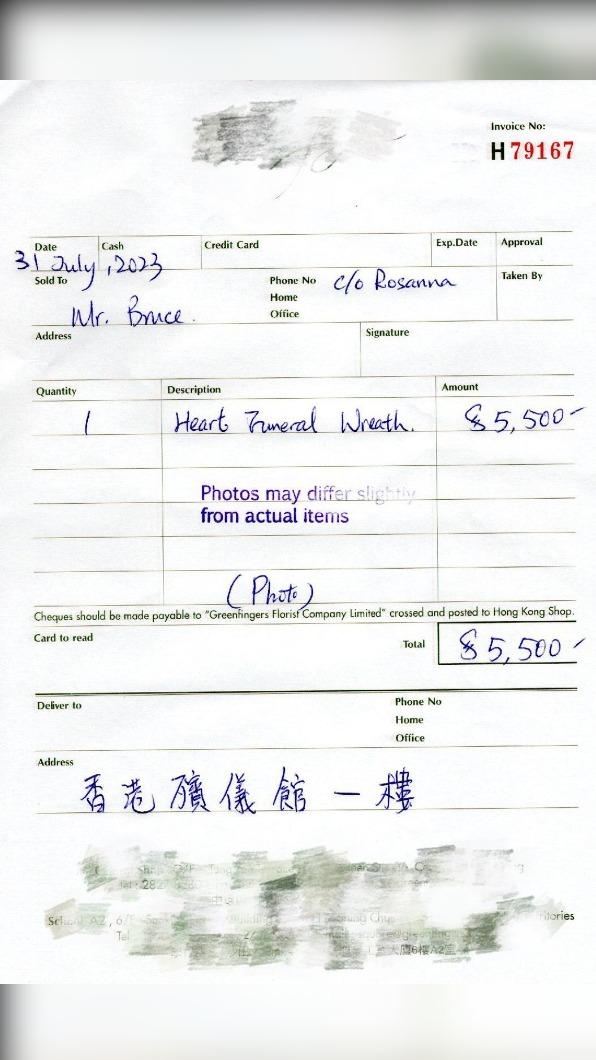 Invoice No:
H 79167
Date Cash Credit Card Exp.Date Approval
31 July, 2023
Sold To Phone No c/o Rosanna Taken By
Home
Mr. Bruce. Office
Address Signature
Quantity Description Amount
1 Heart Funeral Wreath. $5,500-
Photos may differ slightly
from actual items
(Photo)
Cheques should be made payable to "Greenfingers Florist Company Limited" crossed and posted to Hong Kong Shop.
Card to read Total $5,500-
Deliver to Phone No
Home
Office
Address
香港殯儀館一樓
Tel
大廈6樓A2室